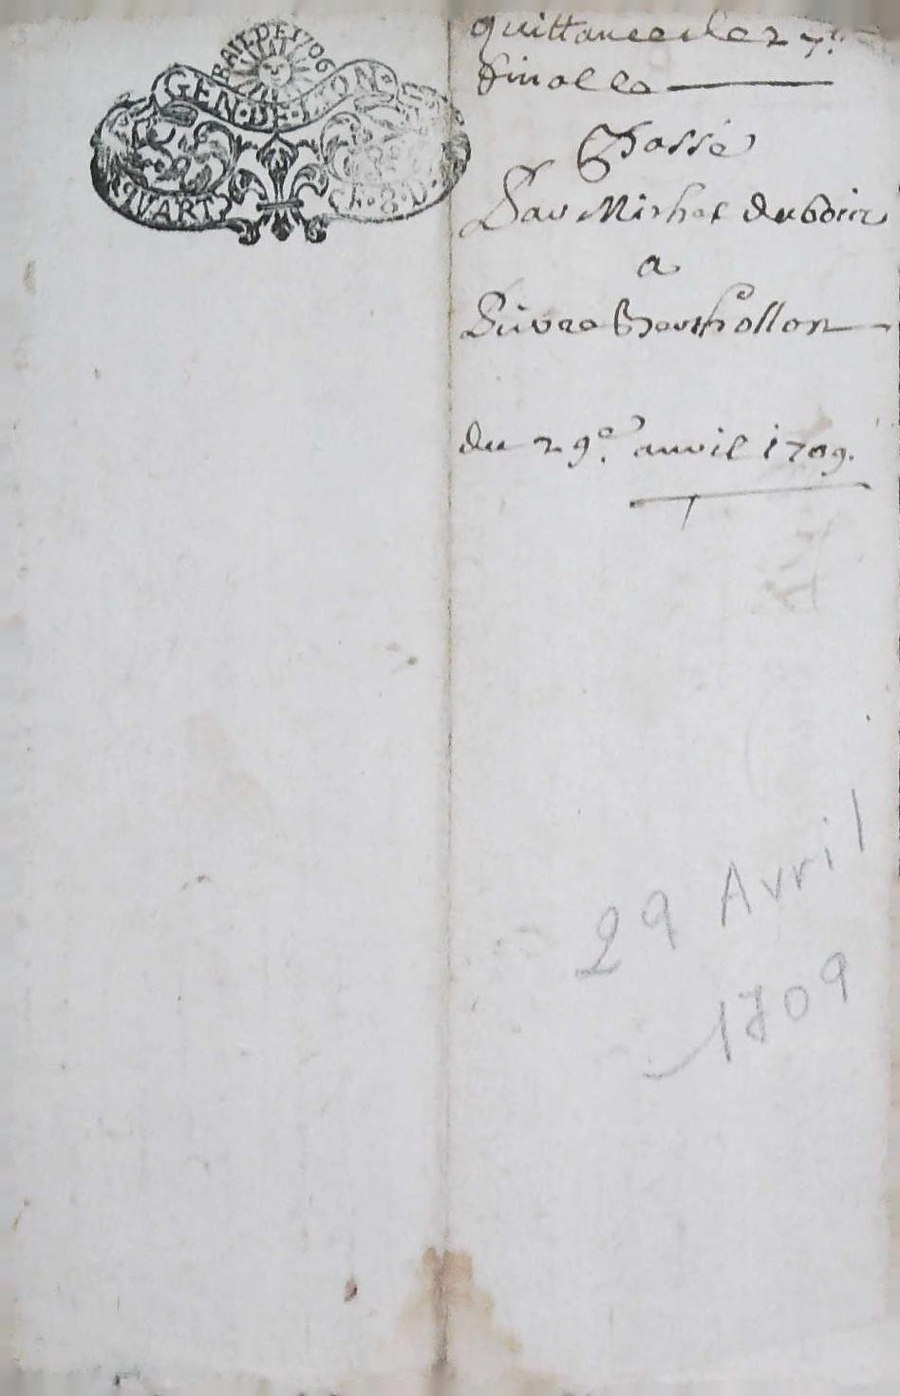 BAIL DE 1706
GEN · DE · LYON
QUART
8 · D
quittance de 27 ll
finalle
Passé
Par Michel dubois
a
Pierre Berthollon
du 29e avril 1709.
29 Avril
1709